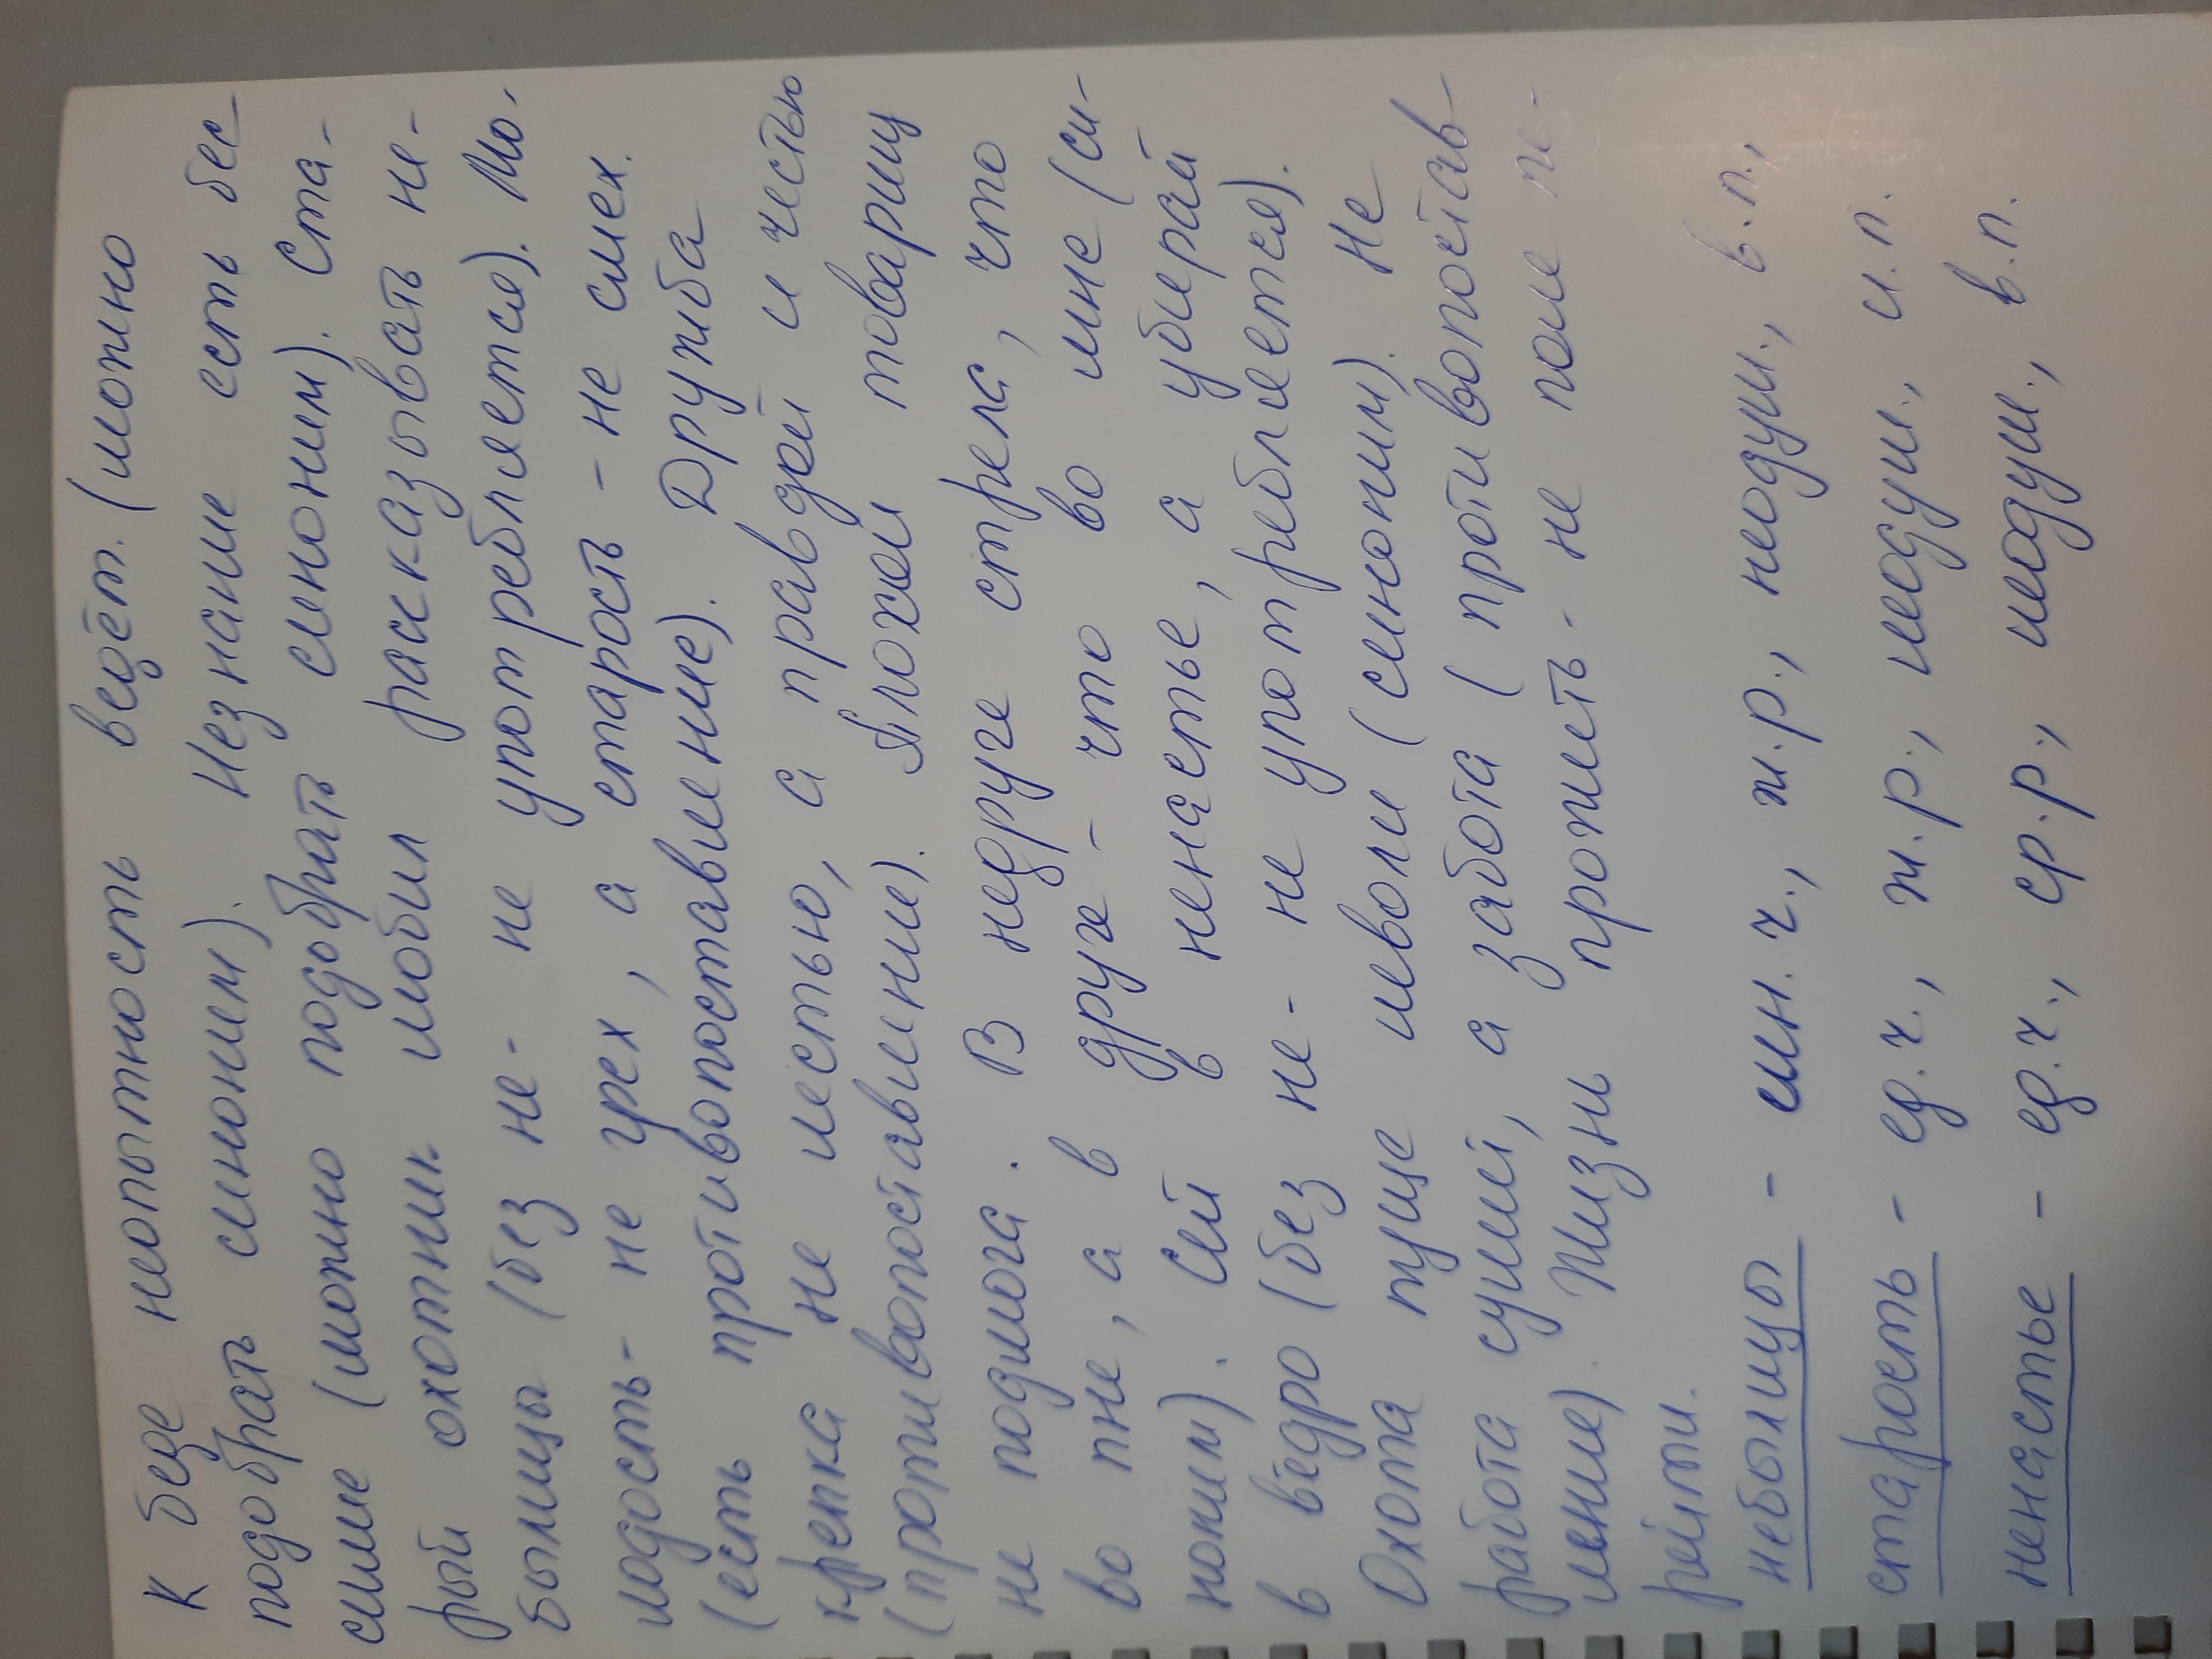 К беде неопытность ведёт. (можно
подобрать синоним). Незнание есть бес
силие (можно подобрать синоним). Ста-
рый охотник любил рассказывать не-
былицы (без не- не употребляется). Мо-
лодость - не грех, а старость - не смех.
(есть противопоставление). Дружба
крепка не лестью, а правдой и честью
(противопоставление). Плохой товарищ
не подмога. В недруге стрела, что
во пне, а в друге - что во мне (си-
ноним). Сей в ненастье, а убирай
в вёдро (без не- не употребляется).
Охота пуще неволи (синоним). Не
работа сушит, а забота (противопостав
ление). Жизнь прожить - не поле пе-
рейти.
небылицы - мн. ч., ж.р., неодуш., в.п.,
старость - ед.ч., ж.р., неодуш., и.п.
ненастье - ед.ч., ср.р., неодуш., в.п.